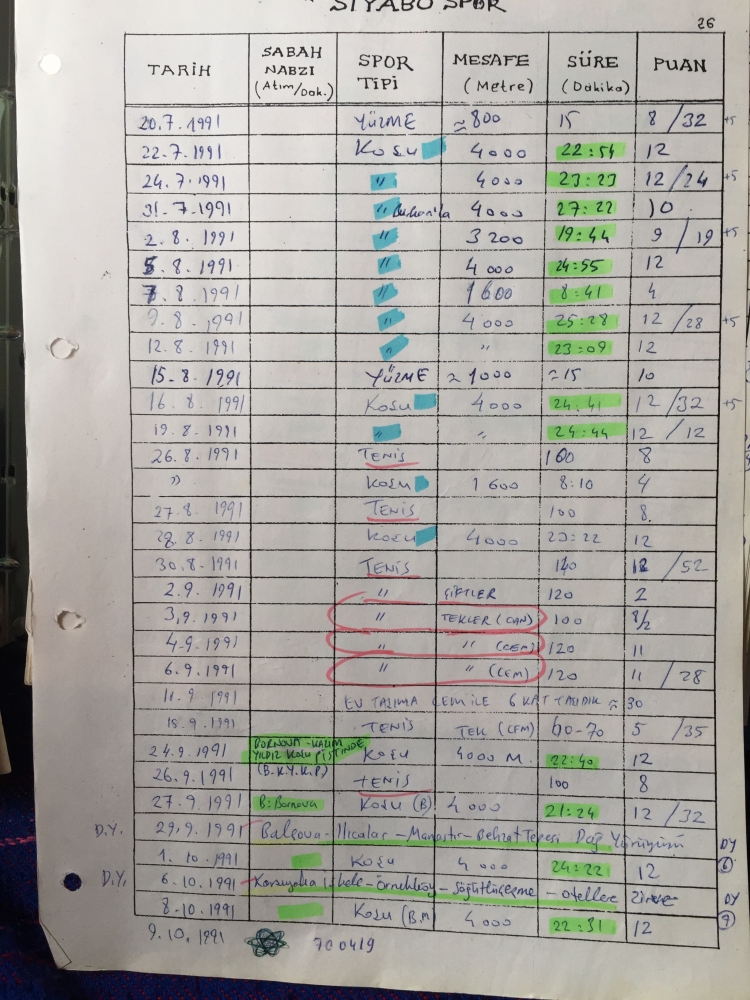 SİYABO SPOR
26
TARİH SABAH NABZI (Atım/Dak.) SPOR TİPİ MESAFE (Metre) SÜRE (Dakika) PUAN
20.7.1991 YÜZME ≈800 15 8 /32 +5
22.7.1991 KOŞU 4000 22:54 12
24.7.1991 " 4000 23:23 12 /24 +5
31.7.1991 " 4000 27:22 10
2.8.1991 " 3200 19:44 9 /19 +5
5.8.1991 " 4000 24:55 12
7.8.1991 " 1600 8:41 4
9.8.1991 " 4000 25:28 12 /28 +5
12.8.1991 " " 23:09 12
15.8.1991 YÜZME ≈1000 ≈15 10
16.8.1991 KOŞU 4000 24:41 12 /32 +5
19.8.1991 " " 24:44 12 /12
26.8.1991 TENİS 100 8
" KOŞU 1600 8:10 4
27.8.1991 TENİS 100 8
28.8.1991 KOŞU 4000 23:22 12
30.8.1991 TENİS 140 12 /52
2.9.1991 " ÇİFTLER 120 2
3.9.1991 " TEKLER (CAN) 100 8/2
4.9.1991 " " (CEM) 120 11
6.9.1991 " " (CEM) 120 11 /28
11.9.1991 EV TAŞIMA CEM İLE 6 KAT TAŞIDIK ≈ 30
18.9.1991 TENİS TEK (CEM) 60-70 5 /35
24.9.1991 BORNOVA-HALİM YILDIZ KOŞU PİSTİNDE (B.K.Y.K.P) KOŞU 4000 M. 22:40 12
26.9.1991 TENİS 100 8
27.9.1991 B:Bornova KOŞU (B) 4000 21:24 12 /32
D.Y. 29.9.1991 Balçova-Ilıcalar-Manastır-Behzat Tepesi Dağ Yürüyüşü DY 6
1.10.1991 KOŞU 4000 24:22 12
D.Y. 6.10.1991 Karşıyaka İskele-Örnekköy-Söğütlüçeşme-oteller Zirve DY 7
8.10.1991 KOŞU 4000 22:31 12
9.10.1991 700419